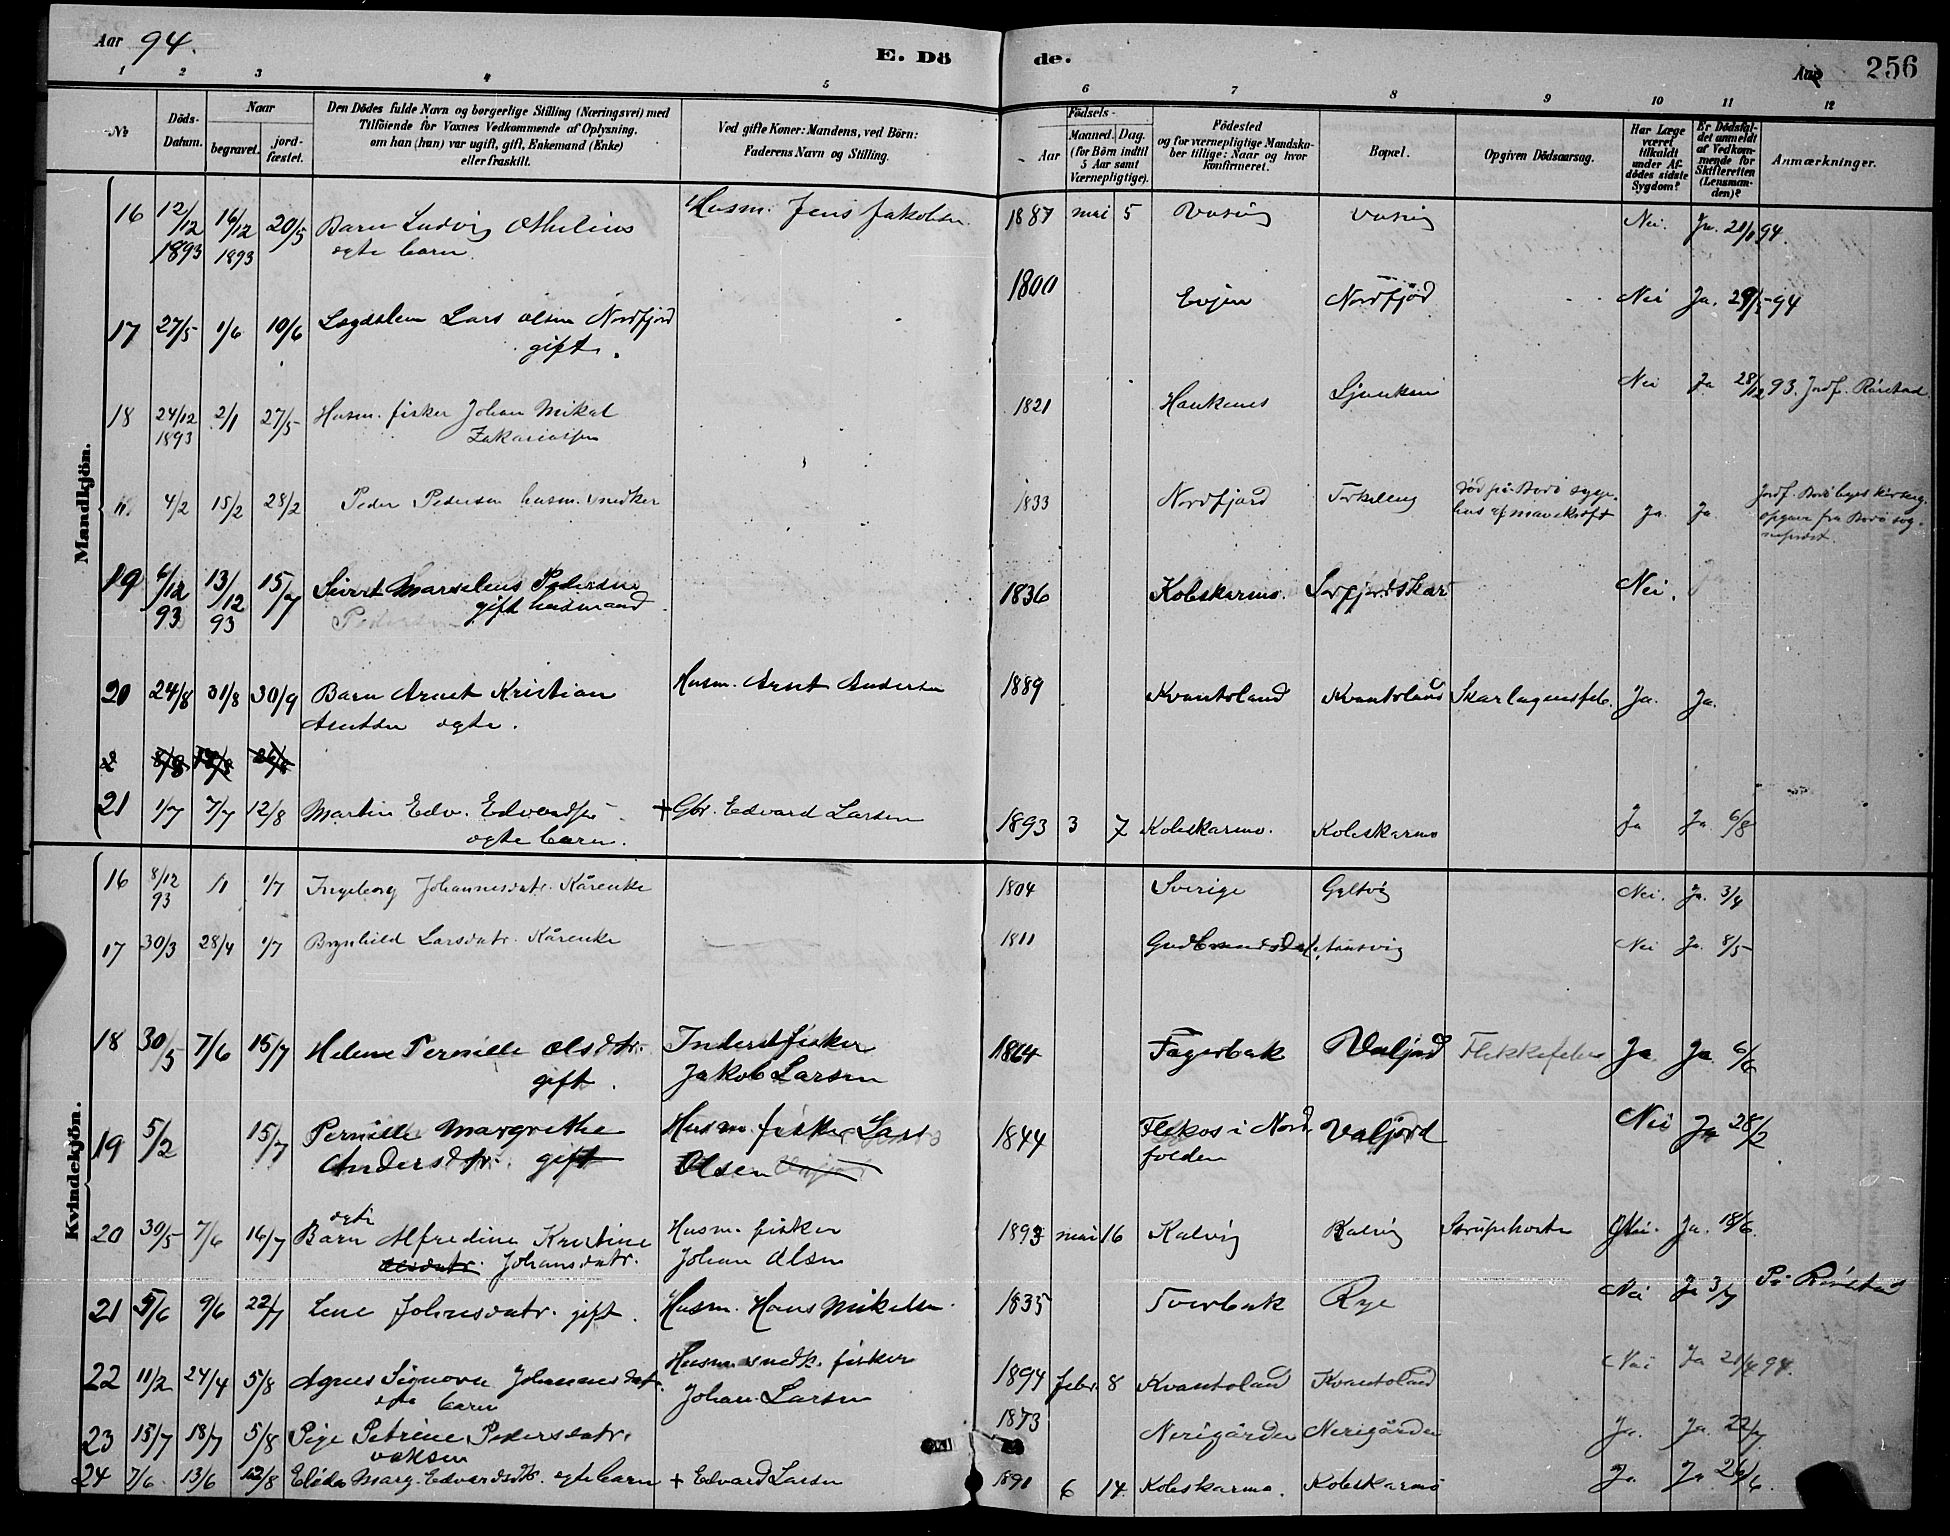 Aar 94.
E. Dö de.
Aar 256
1 2 3 4 5 6 7 8 9 10 11 12
No
Döds-Datum.
Naar
begravet.
jord-fæstet.
Den Dödes fulde Navn og borgerlige Stilling (Næringsvei) med
Tilföiende for Voxnes Vedkommende af Oplysning,
om han (hun) var ugift, gift, Enkemand (Enke)
eller fraskilt.
Ved gifte Koner: Mandens, ved Börn:
Faderens Navn og Stilling.
Födsels-
Aar
Maaned. Dag.
(for Börn indtil
5 Aar samt
Værnepligtige).
Födested
og for værnepligtige Mandska-
ber tillige: Naar og hvor
konfirmeret.
Bopæl.
Opgiven Dödsaarsag.
Har Læge
været
tilkaldt
under Af-
dödes sidste
Sygdom?
Er Dödsfal-
det anmeldt
af Vedkom-
mende for
Skifteretten
(Lensman-
den)?
Anmærkninger.
Mandkjön.
16 12/12 1893 16/12 1893 20/5 Barn Ludvig Othelius Husm. Jens Jakobsen 1887 mai 5 Nei. Ja. 94.
ægte barn.
17 27/5 1/6 10/6 Lægdslem Lars Olsen Nordfjord 1800 Evjen Nordfjord Nei Ja. 29/5 94
gift.
18 24/12 1893 2/1 27/5 Husm. fisker Johan Mikal 1821 Haukenes Nei Ja 28/12 93. Jordf. Rørstad
Zakariassen
4/2 15/2 28/2 Peder Pedersen husm. snedker 1833 Nordfjord død på Bodø syge-
hus af mavekræft Ja. Ja. Jordf. Bodø
opgave fra Bodø sog-
neprest.
19 6/12 93 13/12 93 15/7 Sivert Marselius Pedersen 1836 Koleskarmo. Sørfjordskar Nei.
gift husmand
Pedersen
20 24/8 31/8 30/9 Barn Arnt Kristian Husm. Arnt Andersen 1889 Kvantoland Kvantoland Skarlagensfeb. Ja. Ja.
Arntsen ægte.
21 1/7 7/7 12/8 Martin Edv. Edvardsen + Gbr. Edvard Larsen 1893 3 7 Koleskarmo. Koleskarmo Ja Ja 6/8
ægte barn.
Kvindekjön.
16 8/12 93 1/7 Ingeborg Johannesdatr. Kårenke 1804 Sverige Geltvig Nei. Ja. 3/4
17 30/3 28/4 1/7 Brynhild Larsdatr. Kårenke 1811 Gudbrandsdal. Nei Ja. 8/5
18 30/5 7/6 15/7 Helene Pernille Olsdtr. Inderstfisker 1864 Fagerbak Valjord Flekkefeber Ja Ja 6/6
gift. Jakob Larsen
19 5/2 15/7 Pernille Margrethe Husm. fisker Lars 1844 Flekos i Nord- Valjord Nei Ja 28/2
Andersdtr. gift Olsen folden
20 30/5 7/6 16/7 Barn ægte Alfredine Kristine Husm. fisker 1893 mai 16 Kalvig Kalvig Strupehoste Nei. Ja. 18/6
Olsdatr. Johansdatr. Johan Olsen
21 5/6 9/6 22/7 Lene Johnsdatr. gift. Husm. Hans Mikelsen. 1835 Tverbak Rye Nei Ja 3/7 På Rørstad
22 11/2 24/4 5/8 Agnes Signora Johannesdat. Husm. snedk. fisker 1894 febr. 8 Kvantoland Kvantoland Nei Ja 21/4 94.
ægte barn Johan Larsen
23 15/7 18/7 5/8 Pige Petrine Pedersdatr. 1873 Nerigården Nerigården Ja. Ja. 22/7
voksen
24 7/6 13/6 12/8 Elida Marg. Edvardsdtr. ægte barn + Edvard Larsen 1891 6 14. Koleskarmo. Koleskarmo Ja Ja 26/6.